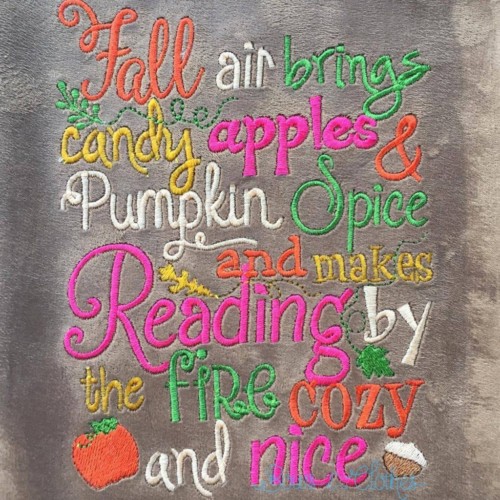 Fall air brings
candy apples &
Pumpkin Spice
and makes
Reading by
the fire cozy
and nice